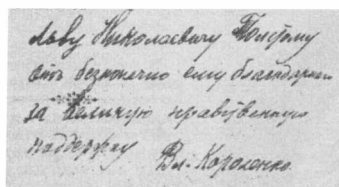 Льву Николаевичу Толстому
отъ безконечно ему благодарнаго
за великую нравственную
поддержку
Вл. Короленко